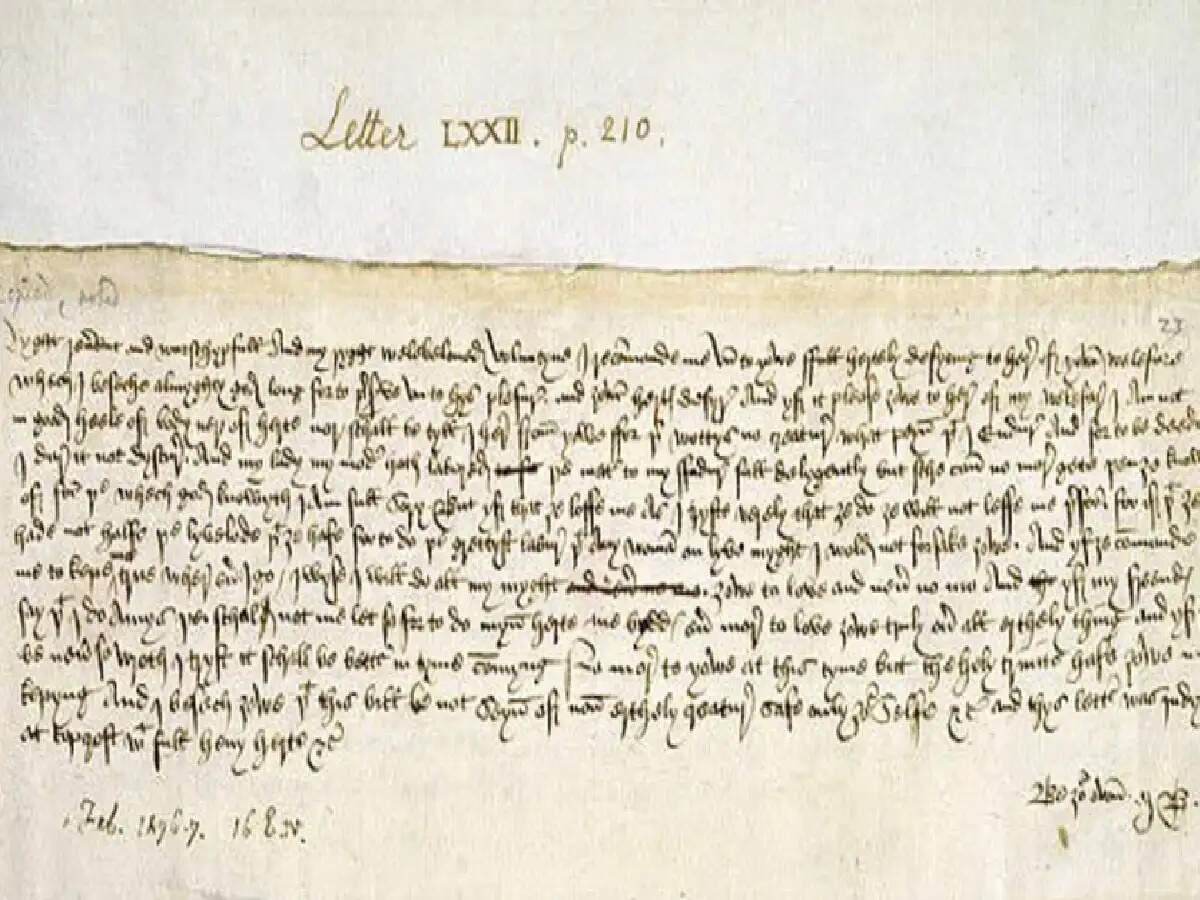 Letter LXXII. p. 210.
copied, noted
23
Ryght reverent and wurschypfull and my ryght welebeloved Voluntyne I recommande me vn to yowe ffull hertely desyring to here of yowr welefare
whech I beseche almyghty god long for to preserve vn to hys plesur and yowr hertys desyr And yf it please yowe to here of my welefar I am not
in good heele of body ner of herte nor schall be tyll I here from yowe ffor þer wottys no creatur what peyn þat I endur And for to be deede
I dur it not dyscur And my lady my moder hath labored þe mater to my ffadur full delygently but sche can no mor gete þen ȝe knowe
of for þe whech god knowyth I am full sory But yf that ȝe loffe me as I tryste verely that ȝe do ȝe will not leffe me þerfor for if þat ȝe
hade not halfe þe lyvelode þat ȝe hafe for to do þe grettyst labur þat any woman on lyve myght I wold not forsake ȝowe And yf ȝe commande
me to kepe me true wherever I go I wyse I will do all my myght ȝowe to love and never no mo And yf my freendys
say þat I do amys þei schal not me let so for to do myn herte me byddys ever mor to love ȝowe truly over all erthely thing and yf þei
be never so wroth I tryst it schall be bettur in tyme commyng No mor to yowe at this tyme but the holy trinite hafe ȝowe in
kepyng And I besech ȝowe þat this bill be not seyn of non erthely creatur safe only ȝour selfe &c and thys lettur was indyte
at Topcroft wt full hevy herte &c
Be ȝour own M B.
Feb. 1476-7. 16 E. IV.